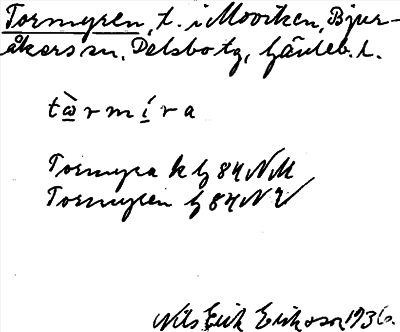 Tormyren, t. i Moviken, Bjur-
åkers sn, Delsbo tg, Gävleb. l.
tὼrmíra
Tormyra k bl 84 NM
Tormyren bl 84 NV
Nils Erik Eriksson 1936.